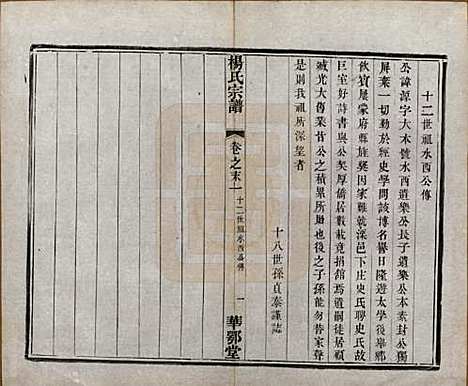 十二世祖水西公傳
公諱源字大本號水西遺樂公長子遺樂公本素封公獨
屏棄一切勤於經史學問該博名譽日隆遊太學後舉鄉
飲賓屢蒙府縣旌奬因家難就溧邑下庄史氏聘史氏故
巨室好詩書與公契厚僑居數載竟捐舘焉遺嗣徒居頫
滅光大傳業昔公之積累所貽也後之子孫能勿替家聲
是則我祖所深望者
十八世孫貞泰謹誌
楊氏宗譜
卷之末一
十二世祖水西公傳
一
華鄂堂